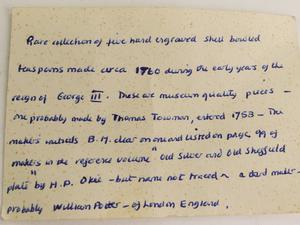 Rare collection of five hand engraved shell bowled
teaspoons made circa 1760 during the early years of the
reign of George III. These are museum quality pieces —
one probably made by Thomas Towman, entered 1753 — The
makers initials B.M. clear on one and listed on page 99 of
makers in the reference volume. Old Silver and Old Sheffield
plate" by H.P. Okie — but name not traced — a third maker —
probably William Potter — of London England.